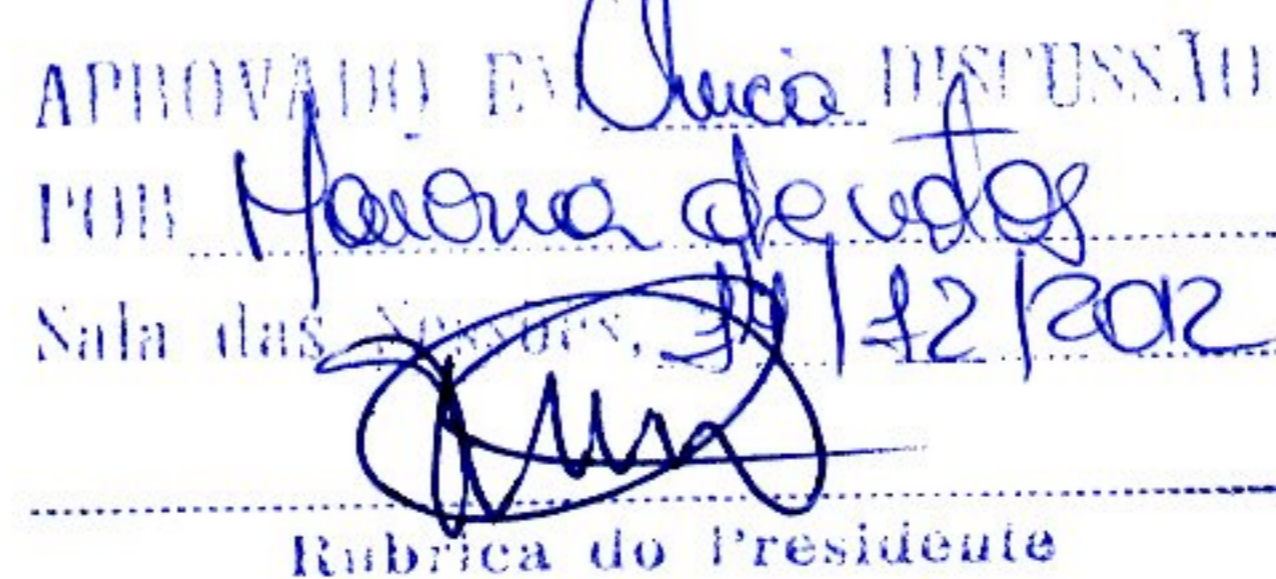 APROVADO EM Única DISCUSSÃO
POR Maioria de votos
Sala das Sessões, /12/2012
Rubrica do Presidente